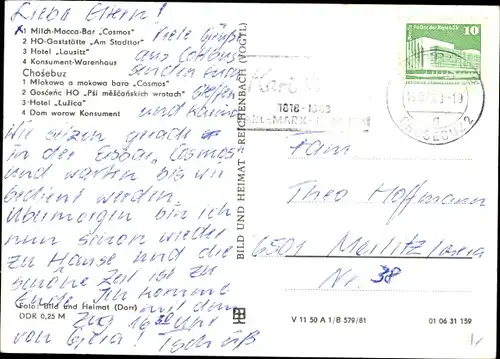 Liebe Eltern!
1 Milch-Mocca-Bar „Cosmos"
2 HO-Gaststätte „Am Stadttor"
3 Hotel „Lausitz"
4 Konsument-Warenhaus
Chośebuz
1 Mlokowa a mokowa bara „Cosmos"
2 Gosćeńc HO „Pśi měsćańskich wrotach"
3 Hotel „Łužica"
4 Dom worow Konsument
Viele Grüße
aus Cottbus
senden euch
Steffen
und
Wir sitzen grade
in der Eisbar „Cosmos"
und warten bis wir
bedient werden.
Übermorgen bin ich
nun schon wieder
zu Hause und die
schöne Zeit ist zu
Ende. Ich komme
mit dem
Zug 16 Uhr
von Gera! Tschüß
Foto: Bild und Heimat (Darr)
DDR 0,25 M
BILD UND HEIMAT REICHENBACH (VOGTL)
Palast der Republik
10
DDR
Karl
1818-1883
KARL-MARX-
CHOŚEBUZ 2
Fam.
Theo Hoffmann
6501 Markersdorf
Nr. 38
V 11 50 A 1/B 579/81
01 06 31 159